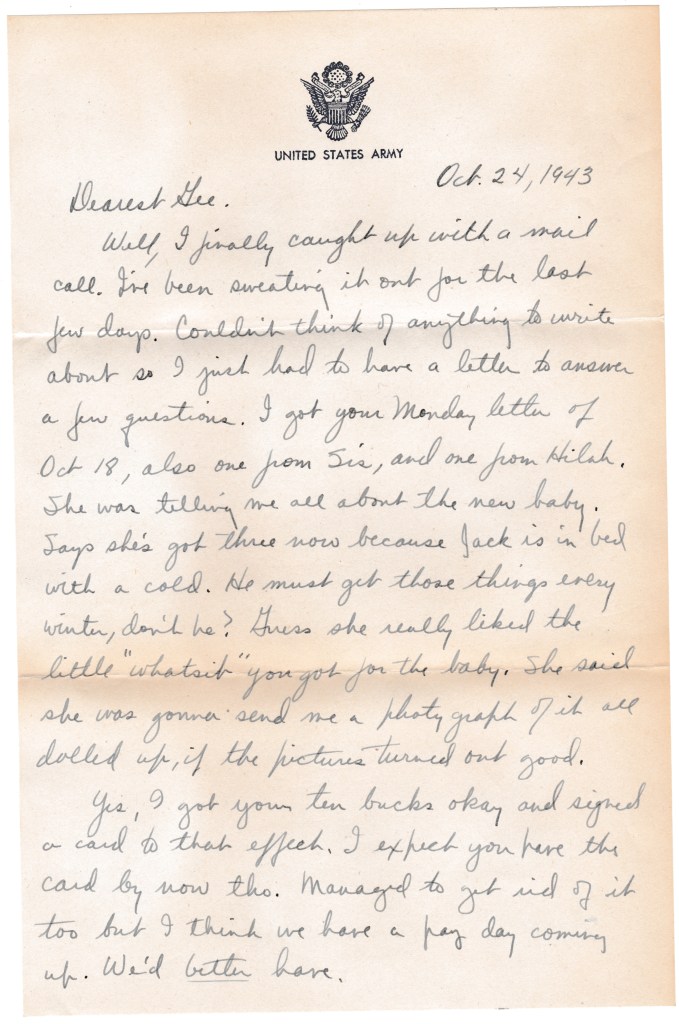 UNITED STATES ARMY
Oct. 24, 1943
Dearest Gee.
Well, I finally caught up with a mail
call. I've been sweating it out for the last
few days. Couldn't think of anything to write
about so I just had to have a letter to answer
a few questions. I got your Monday letter of
Oct 18, also one from Sis, and one from Hilah.
She was telling me all about the new baby.
Says she's got three now because Jack is in bed
with a cold. He must get those things every
winter, don't he? Guess she really liked the
little "whatsit" you got for the baby. She said
she was gonna send me a photygraph of it all
dolled up, if the pictures turned out good.
Yes, I got your ten bucks okay and signed
a card to that effect. I expect you have the
card by now tho. Managed to get rid of it
too but I think we have a pay day coming
up. We'd better have.